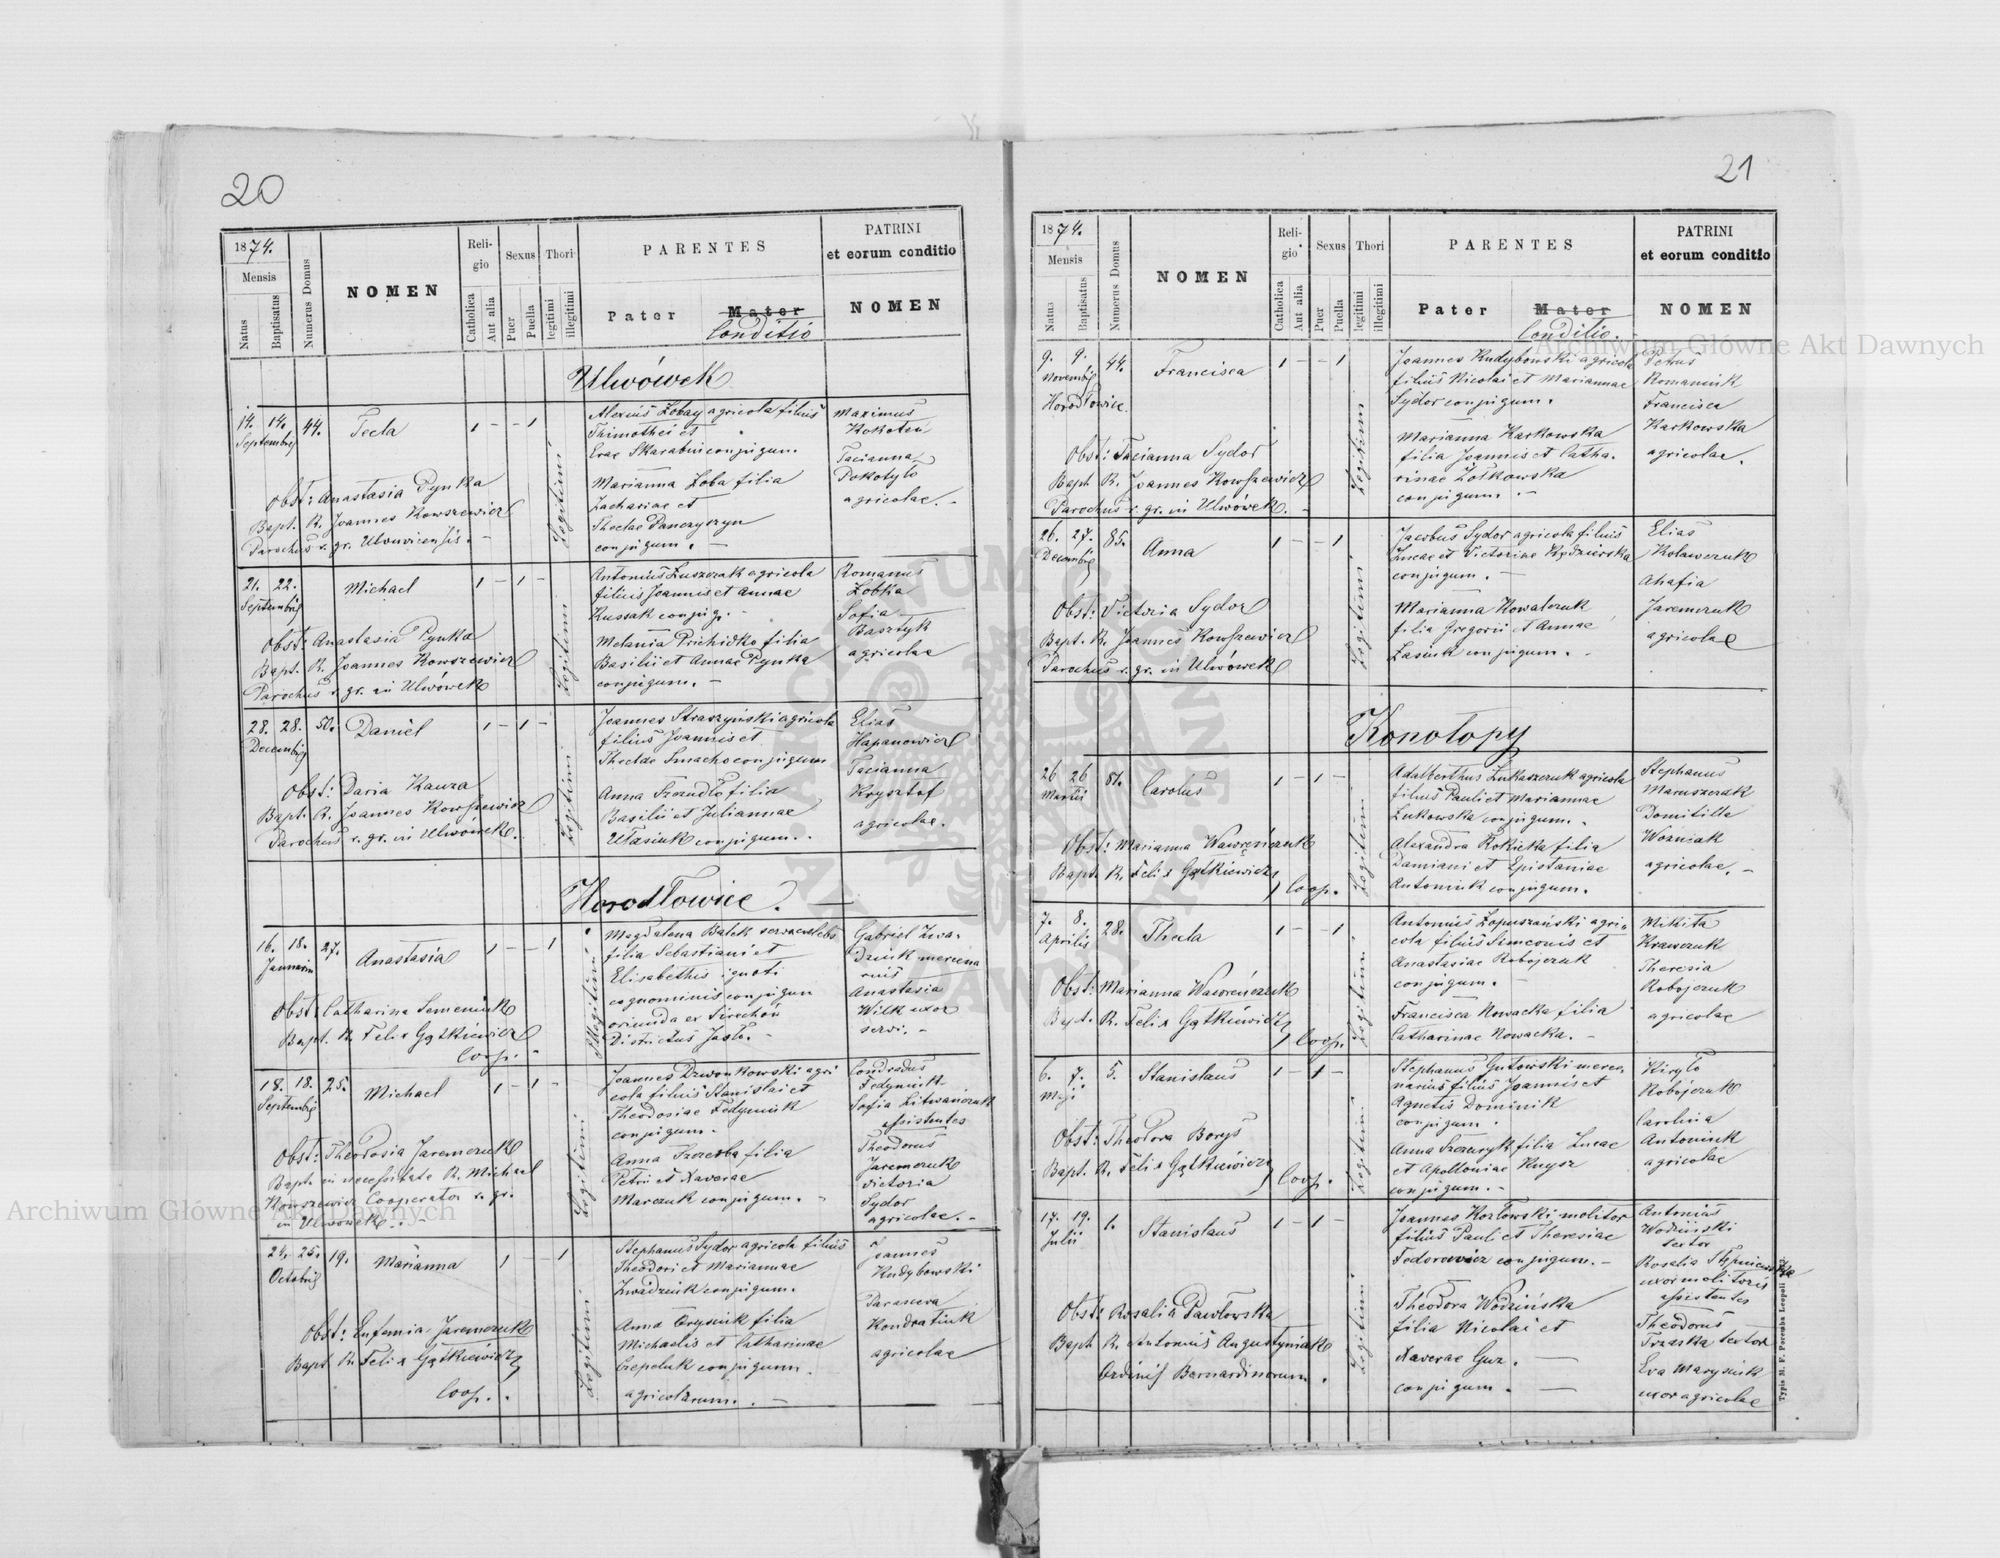 20
1874.
Mensis
Natus
Baptisatus
Numerus Domus
NOMEN
Reli-
gio
Catholica
Aut alia
Sexus
Puer
Puella
Thori
legitimi
illegitimi
PARENTES
Pater
Mater
Conditio
PATRINI
et eorum conditio
NOMEN
Ulwówek
14. 14. 44. Tecla 1 - - 1
Septembris
Obst: Anastasia Pynka
Bapt. R. Joannes Kowszewicz
Parochus r. gr. Ulwuvicensis. -
Legitimi
Alexius Łobay agricola filius
Thimothei et
Evae Skarabin conjugum.
Marianna Łoba filia
Zachariae et
Theclae Panczyszyn
conjugum. -
Maximus
Kokoten
Tacianna
Pokotyło
agricolae. -
21. 22. Michael 1 - 1 -
Septembris
Obst: Anastasia Pynka
Bapt. R. Joannes Kowszewicz
Parochus r. gr. in Ulwówek
Legitimi
Antonius Łuszczak agricola
filius Joannis et Annae
Kussak conjug. -
Melania Prichidko filia
Basilii et Annae Pynka
conjugum. -
Romanus
Łobka
Sofia
Basztyk
agricolae
28. 28. 50. Daniel 1 - 1 -
Decembris
Obst: Daria Kauza
Bapt. R. Joannes Kowszewicz
Parochus r. gr. in Ulwówek.
Legitimi
Joannes Straszyński agricola
filius Joannis et
Theclae Smacho conjugum
Anna Frandło filia
Basilii et Juliannae
Ułasiuk conjugum. -
Elias
Hapanowicz
Tacianna
Krysztof
agricolae.
Horodłowice. -
16. 18. 27. Anastasia 1 - - 1
Januarii
Obst: Catharina Semeniuk
Bapt. R. Felix Gątkiewicz
Coop. -
Illegitimi
Magdalena Batek
filia Sebastiani et
Elisabethis ignoti
cognominis conjugum
oriunda ex Sirochów
Districtus Jasło. -
Gabriel Zwa-
dziuk mercena
rius
Anastasia
Wilk uxor
servi. -
18. 18. 25. Michael 1 - 1 -
Septembris
Obst: Theodosia Jaremczuk
Bapt. in necessitate R. Michael
Kowszewicz Cooperator r. gr.
in Ulwówek. -
Legitimi
Joannes Dzwonkowski agri
cola filius Stanislai et
Theodosiae Fedyniuk
conjugum. -
Anna Szczerba filia
Petri et Xaverae
Marczuk conjugum. -
Condradus
Fedyniuk
Sofia Litwanczuk
assistentes
Theodorus
Jaremczuk
Victoria
Sydor
agricolae. -
24. 25. 19. Marianna 1 - - 1
Octobris
Obst: Eufemia Jaremczuk
Bapt R. Felix Gątkiewicz
Coop. .
Legitimi
Stephanus Sydor agricola filius
Theodori et Mariannae
Zwadziuk conjugum.
Anna Orysiuk filia
Michaelis et Catharinae
Czepeluk conjugum.
agricolarum. -
Joannes
Kudybowski
Parasceva
Kondratiuk
agricolae
21
1874.
Mensis
Natus
Baptisatus
Numerus Domus
NOMEN
Reli-
gio
Catholica
Aut alia
Sexus
Puer
Puella
Thori
legitimi
illegitimi
PARENTES
Pater
Mater
Conditio.
PATRINI
et eorum conditio
NOMEN
9. 9. 44. Francisca 1 - - 1
Novembris
Horodłowice.
Obst: Tacianna Sydor
Baph R. Joannes Kowszewicz
Parochus r. gr. in Ulwówek. -
Legitimi
Joannes Kudybowski agricola
filius Nicolai et Mariannae
Sydor conjugum.
Marianna Karkowska
filia Joannis et Catha-
rinae Żołkowska
conjugum. -
Petrus
Romaniuk
Francisca
Karkowska
agricolae.
26. 27. 85. Anna 1 - - 1
Decembris
Obst: Victoria Sydor
Bapt. R. Joannes Kowszewicz
Parochus r. gr. in Ulwówek
Legitimi
Jacobus Sydor agricola filius
Lucae et Victoriae
conjugum. -
Marianna Kowalczuk
filia Gregorii et Annae
Łasiuk conjugum. -
Elias
Kolawczuk
Ahafia
Jaremczuk
agricolae
Konotopy
26 26 81. Carolus 1 - 1 -
Martii
Obst: Marianna Wawreńczuk
Bapt. R. Felix Gątkiewicz
Coop.
Legitimi
Adalberthus Łukaszczuk agricola
filius Pauli et Mariannae
Łukowska conjugum. -
Alexandra Rokicka filia
Damiani et Epistaniae
Antoniuk conjugum.
Stephanus
Maruszczak
Domitilla
Wozniak
agricolae. -
7. 8. 28. Thecla 1 - - 1
Aprilis
Obst: Marianna Wawreńczuk
Bapt. R. Felix Gątkiewicz
Coop.
Legitimi
Antonius Łopuszański agri-
cola filius Simeonis et
Anastasiae Robojczuk
conjugum. -
Francisca Nowacka filia
Catharinae Nowacka. -
Mikita
Krawczuk
Theresia
Robojczuk
agricolae
6. 7. 5. Stanislaus 1 - 1 -
Maji
Obst: Theodora Borys
Bapt. R. Felix Gątkiewicz
Coop.
Legitimi
Stephanus Gutowski merce-
narius filius Joannis et
Agnetis Dominik
conjugum.
Anna Szewryk filia Lucae
et Apolloniae Knysz
conjugum. -
Kiryło
Robojczuk
Carolina
Antoniuk
agricolae
17. 19. 1. Stanislaus 1 - 1 -
Julii
Obst: Rosalia Pawłowska
Baph R. Antonius Augustyniak
Ordinis Bernardinorum.
Legitimi
Joannes Kozłowski molitor
filius Pauli et Theresiae
Fodorowicz conjugum. -
Theodora Wodzińska
filia Nicolai et
Xaverae Guz. -
conjugum. -
Antonius
Wodziński
textor
Rosalia
uxor molitoris
assistentes
Theodorus
Trzaska textor
Eva Marysiuk
uxor agricolae
Archiwum Główne Akt Dawnych
Archiwum Główne Akt Dawnych